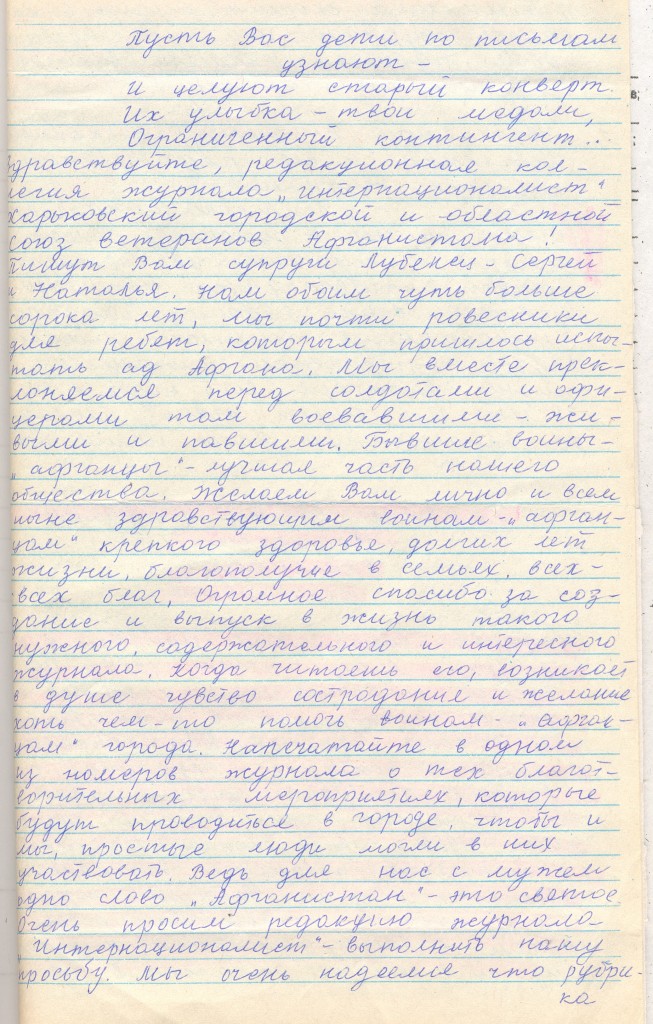 Пусть Вас дети по письмам
узнают –
И целуют старый конверт.
Их улыбка – твои медали,
Ограниченный контингент...
Здравствуйте, редакционная кол-
легия журнала „интернационалист“
харьковский городской и областной
союз ветеранов Афганистана!
Пишут Вам супруги Лубенец – Сергей
и Наталья. Нам обоим чуть больше
сорока лет, мы почти ровесники
для ребят, которым пришлось испы-
тать ад Афгана. Мы вместе прек-
лоняемся перед солдатами и офи-
церами там воевавшими – жи-
выми и павшими. Бывшие воины –
„афганцы“ – лучшая часть нашего
общества. Желаем Вам лично и всем
ныне здравствующим воинам – „афган-
цам“ крепкого здоровья, долгих лет
жизни, благополучие в семьях, всех-
всех благ, Огромное спасибо за соз-
дание и выпуск в жизнь такого
нужного, содержательного и интересного
журнала. Когда читаешь его, возникает
в душе чувство сострадания и желание
хоть чем-то помочь воинам – „афган-
цам“ города. Напечатайте в одном
из номеров журнала о тех благот-
ворительных мероприятиях, которые
будут проводиться в городе, чтобы и
мы, простые люди могли в них
участвовать. Ведь для нас с мужем
одно слово „Афганистан“ – это святое.
Очень просим редакцию журнала
„Интернационалист“ – выполнить нашу
просьбу. Мы очень надеемся что рубри-
ка